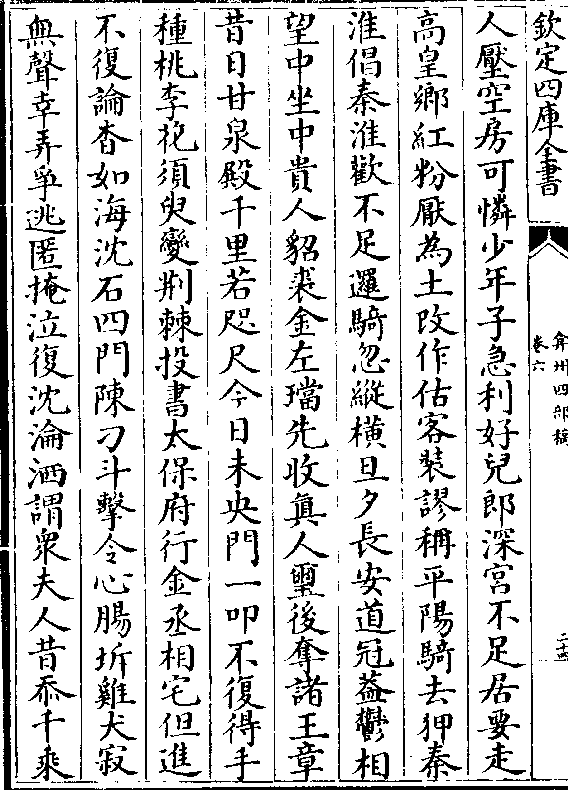 欽定四庫全書
弇州四部稿
卷六
二十四
人壓空房可憐少年子急利好兒郎深宮不足居要走
高皇鄉紅粉厭為土改作估客裝謬稱平陽騎去狎秦
淮倡秦淮歡不足邏騎忽縱橫旦夕長安道冠葢鬱相
望中坐中貴人貂裘金左璫先收真人璽後奪諸王章
昔日甘泉殿千里若咫尺今日未央門一叩不復得手
種桃李花須臾變荆棘投書太保府行金丞相宅但進
不復論杳如海沈石四門陳刁斗擊令心腸坼雞犬寂
無聲幸弄爭逃匿掩泣復沈淪洒謂衆夫人昔忝千乘